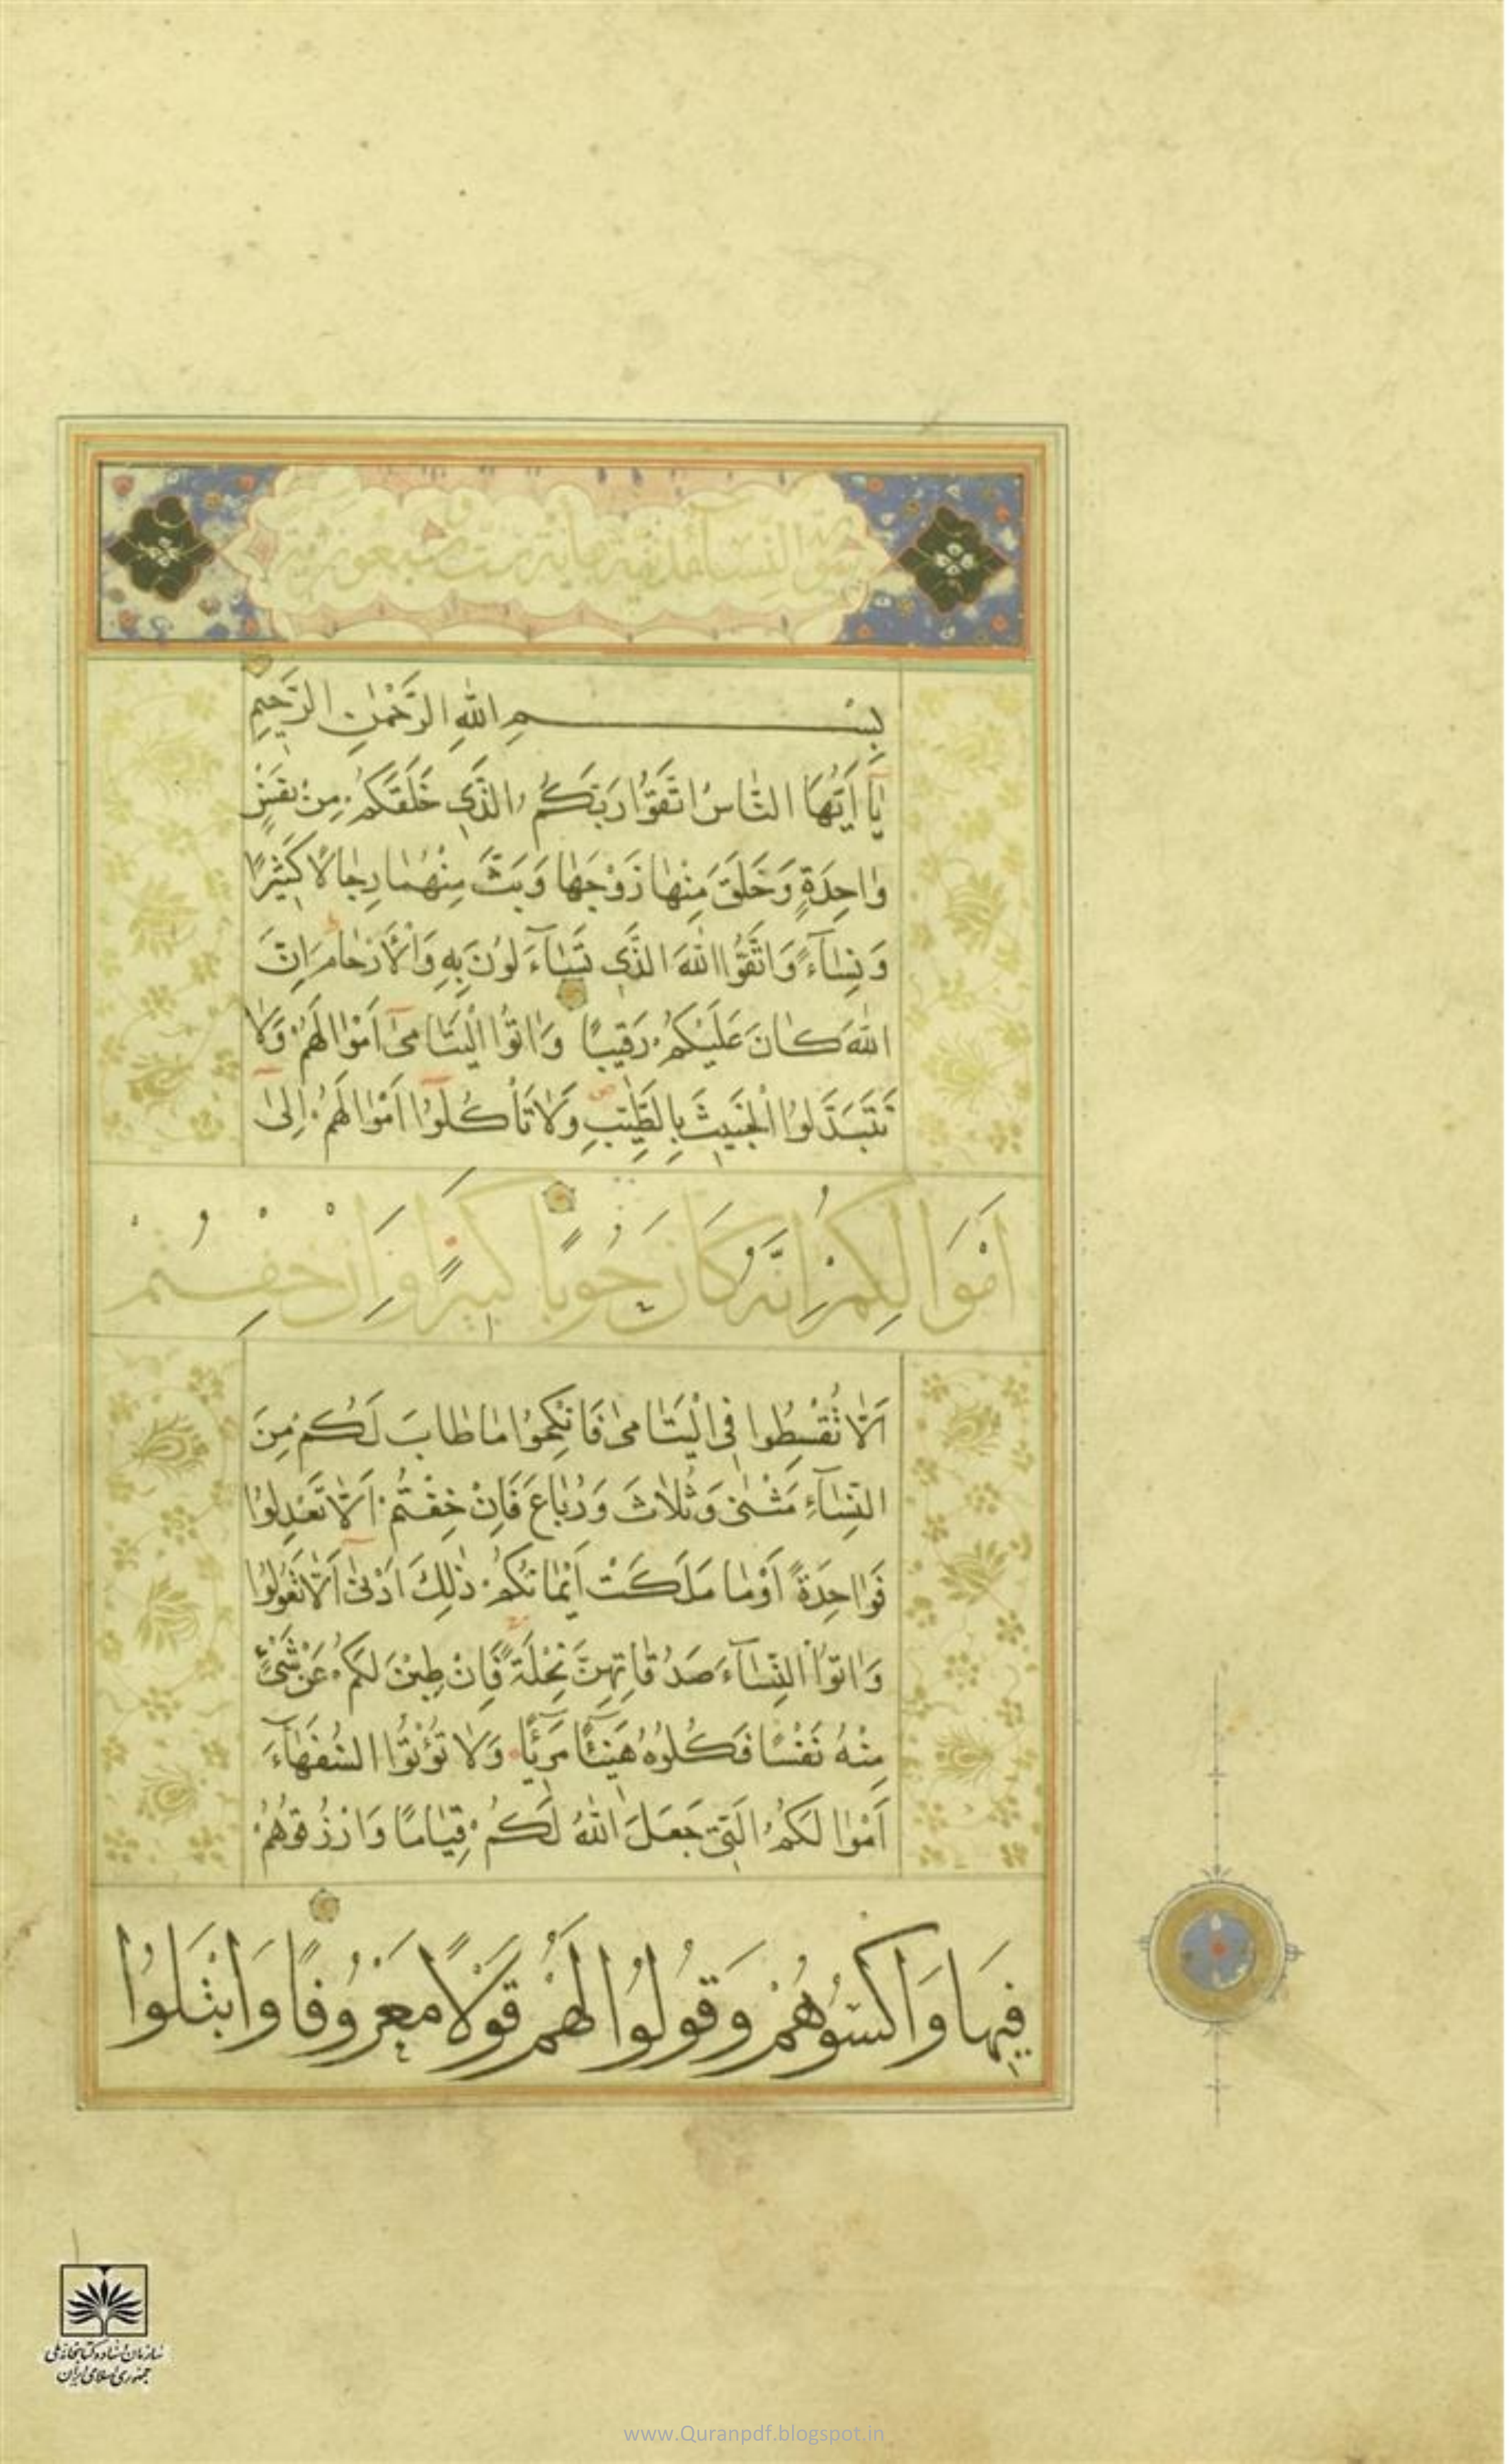 سورة النساء
بِسْمِ اللّٰهِ الرَّحْمٰنِ الرَّحيمِ
يٰٓا اَيُّهَا النّٰاسُ اتَّقُوا رَبَّكُمُ الَّذي خَلَقَكُمْ مِنْ نَفْسٍ
وٰاحِدَةٍ وَخَلَقَ مِنْهٰا زَوْجَهٰا وَبَثَّ مِنْهُمٰا رِجٰالًا كَثيرًا
وَنِسٰآءً وَاتَّقُوا اللّٰهَ الَّذي تَسٰآءَلُونَ بِهِ وَالْاَرْحٰامَ اِنَّ
اللّٰهَ كٰانَ عَلَيْكُمْ رَقيبًا وَاٰتُوا الْيَتٰامىٰٓ اَمْوٰالَهُمْ وَلٰا
تَتَبَدَّلُوا الْخَبيثَ بِالطَّيِّبِ وَلٰا تَأْكُلُوٓا اَمْوٰالَهُمْ اِلىٰٓ
اَمْوَالِكُمْ اِنَّهُ كَانَ حُوبًا كَبيرًا وَاِنْ خِفْتُمْ
اَلّٰا تُقْسِطُوا فِي الْيَتٰامىٰ فَانْكِحُوا مٰا طٰابَ لَكُمْ مِنَ
النِّسٰآءِ مَثْنىٰ وَثُلٰاثَ وَرُبٰاعَ فَاِنْ خِفْتُمْ اَلّٰا تَعْدِلُوا
فَوٰاحِدَةً اَوْ مٰا مَلَكَتْ اَيْمٰانُكُمْ ذٰلِكَ اَدْنىٰٓ اَلّٰا تَعُولُوا
وَاٰتُوا النِّسٰآءَ صَدُقٰاتِهِنَّ نِحْلَةً فَاِنْ طِبْنَ لَكُمْ عَنْ شَيْءٍ
مِنْهُ نَفْسًا فَكُلُوهُ هَنيٓئًا مَريٓئًا وَلٰا تُؤْتُوا السُّفَهٰآءَ
اَمْوٰالَكُمُ الَّتي جَعَلَ اللّٰهُ لَكُمْ قِيٰامًا وَارْزُقُوهُمْ
فيهَا وَاكْسُوهُمْ وَقُولُوا لَهُمْ قَوْلًا مَعْرُوفًا وَابْتَلُوا
سازمان اسناد و کتابخانه ملی
جمهوری اسلامی ایران
www.Quranpdf.blogspot.in